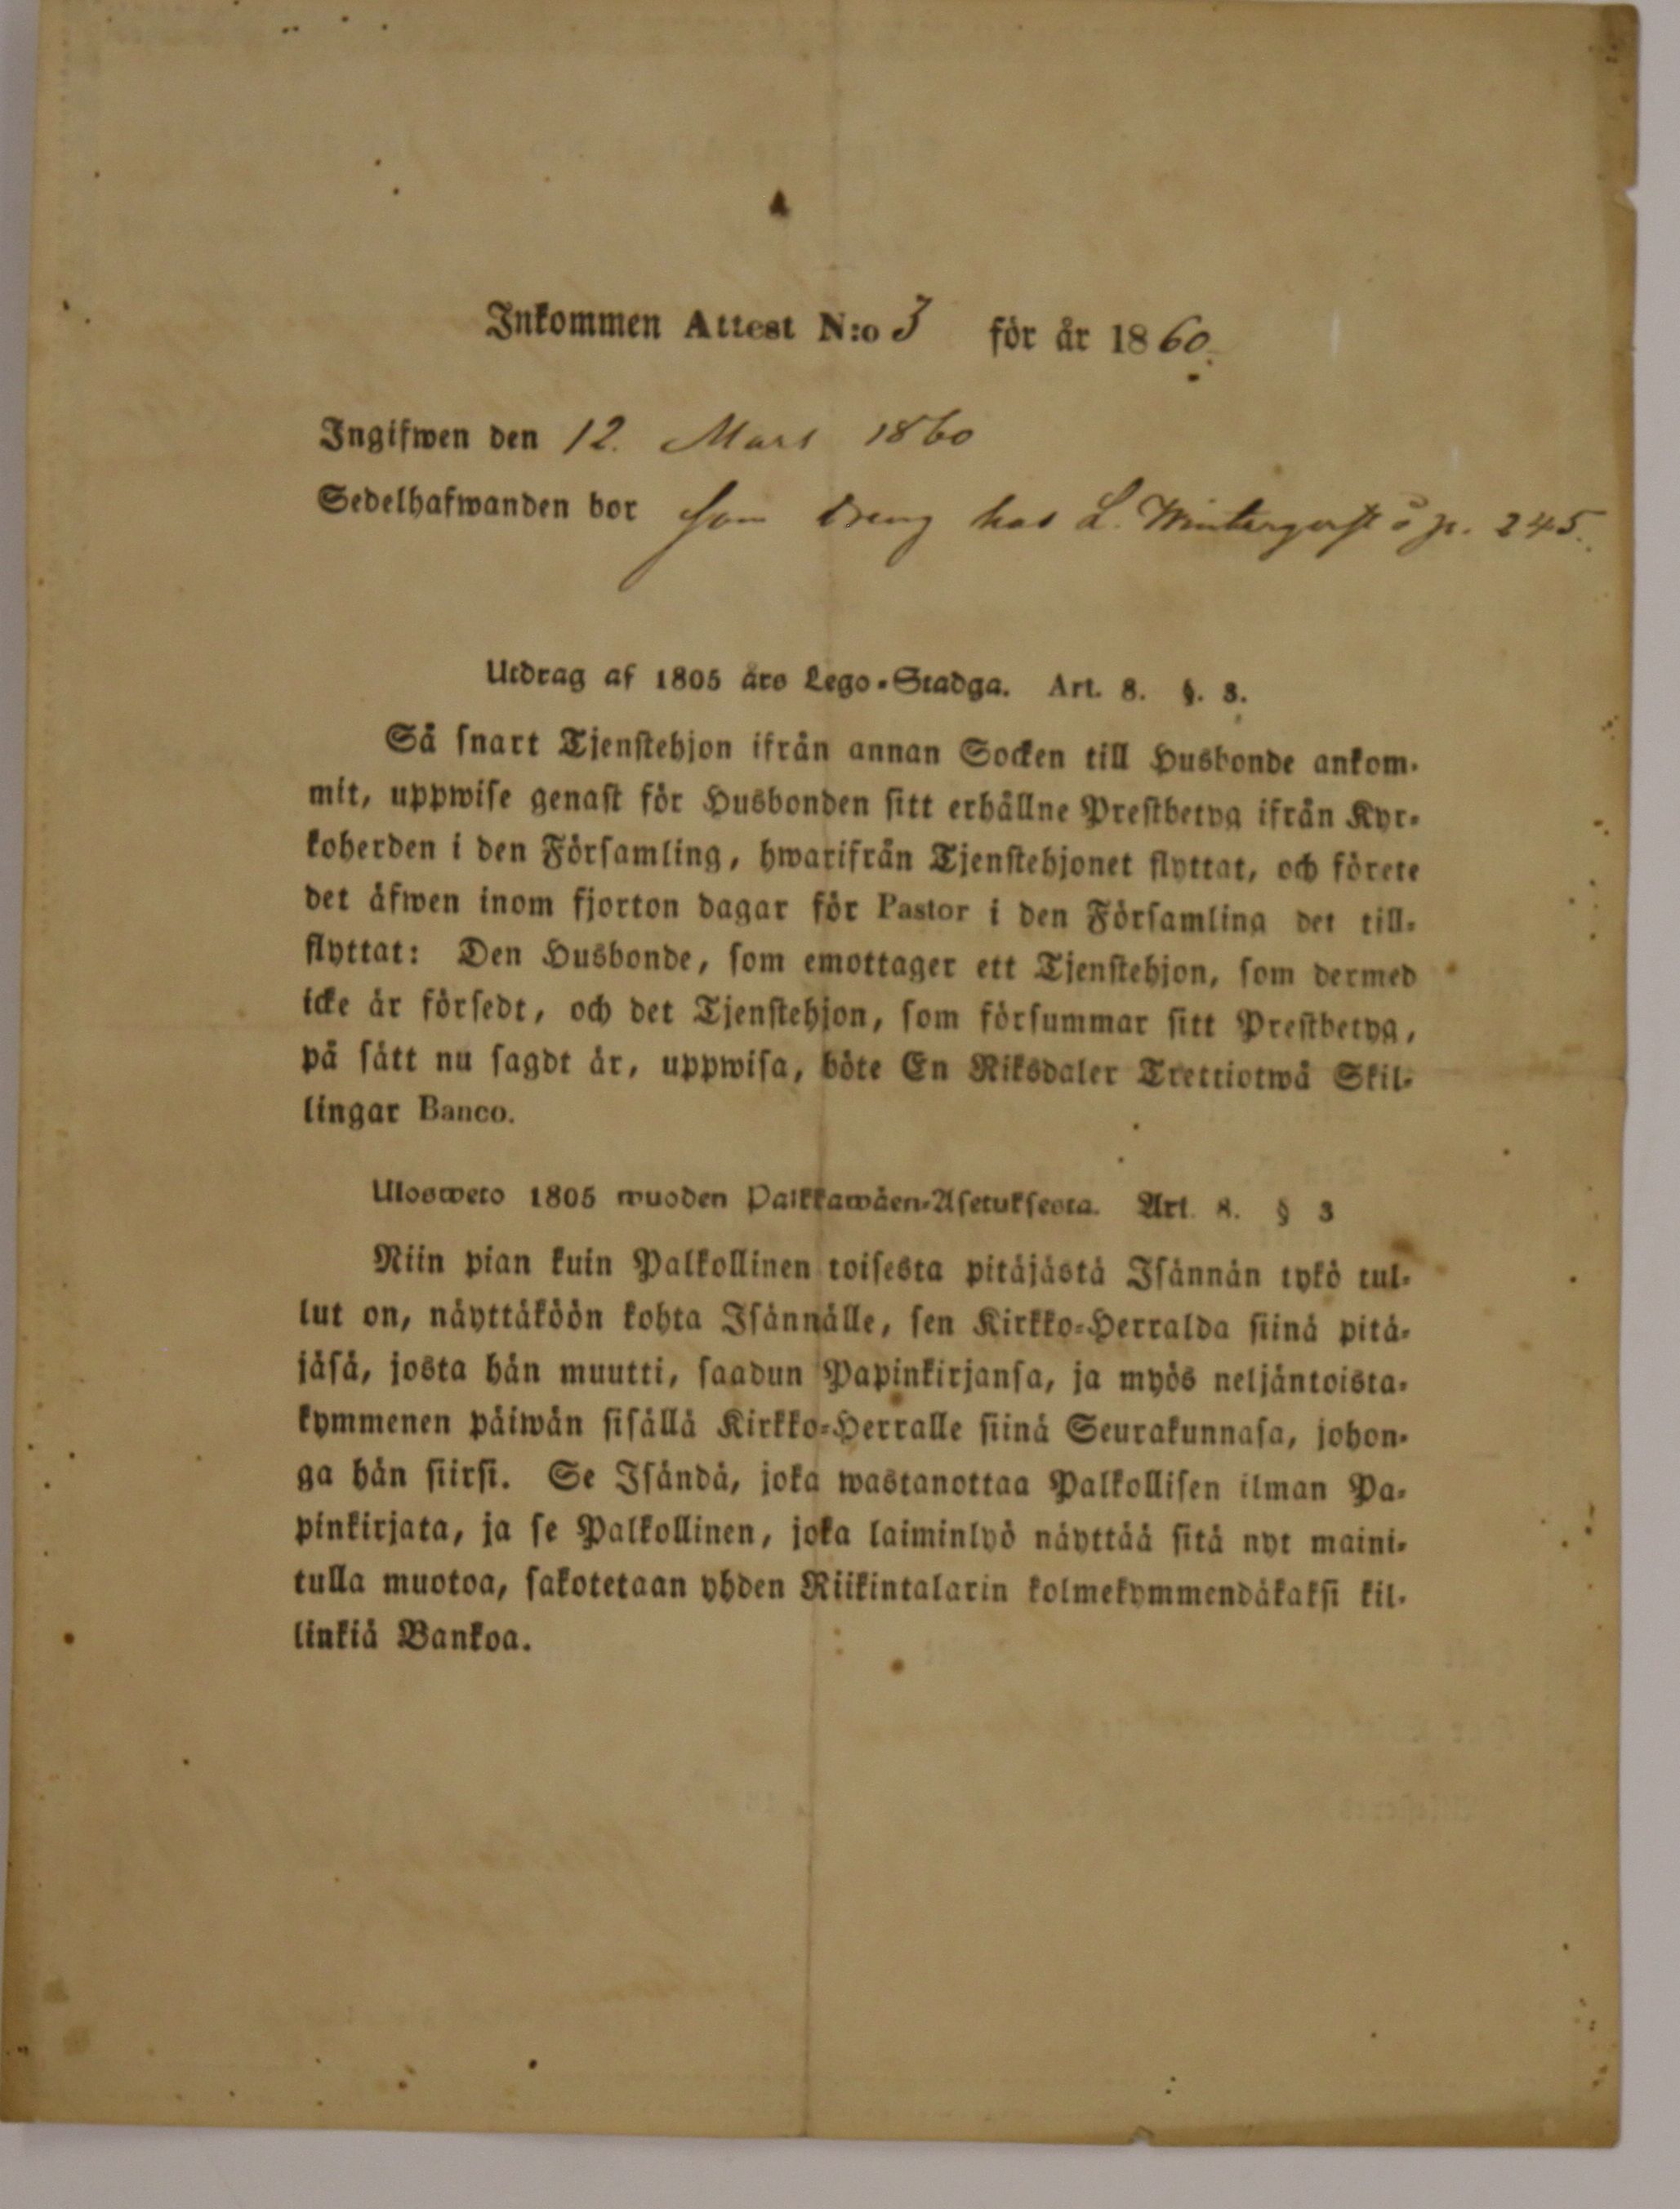 Inkommen Attest N:o 3 för år 1860.
Ingifwen den 12. Mars 1860
Sedelhafwanden bor som dreng hos L. p. 245.
Utdrag af 1805 års Lego-Stadga. Art. 8. §. 3.
Så snart Tjenstehjon ifrån annan Socken till Husbonde ankom-
mit, uppwise genast för Husbonden sitt erhållne Prestbetyg ifrån Kyr-
koherden i den Församling, hwarifrån Tjenstehjonet flyttat, och förete
det äfwen inom fjorton dagar för Pastor i den Församling det till-
flyttat: Den Husbonde, som emottager ett Tjenstehjon, som dermed
icke är försedt, och det Tjenstehjon, som försummar sitt Prestbetyg,
på sätt nu sagdt är, uppwisa, böte En Riksdaler Trettiotwå Skil-
lingar Banco.
Ulosweto 1805 wuoden Palkkawäen-Asetuksesta. Art. 8. § 3
Niin pian kuin Palkollinen toisesta pitäjästä Isännän tykö tul-
lut on, näyttäköön kohta Isännälle, sen Kirkko-Herralda siinä pitä-
jäsä, josta hän muutti, saadun Papinkirjansa, ja myös neljäntoista-
kymmenen päiwän sisällä Kirkko-Herralle siinä Seurakunnasa, johon-
ga hän siirsi. Se Isändä, joka wastanottaa Palkollisen ilman Pa-
pinkirjata, ja se Palkollinen, joka laiminlyö näyttää sitä nyt maini-
tulla muotoa, sakotetaan yhden Riikintalarin kolmekymmendäkaksi kil-
linkiä Bankoa.